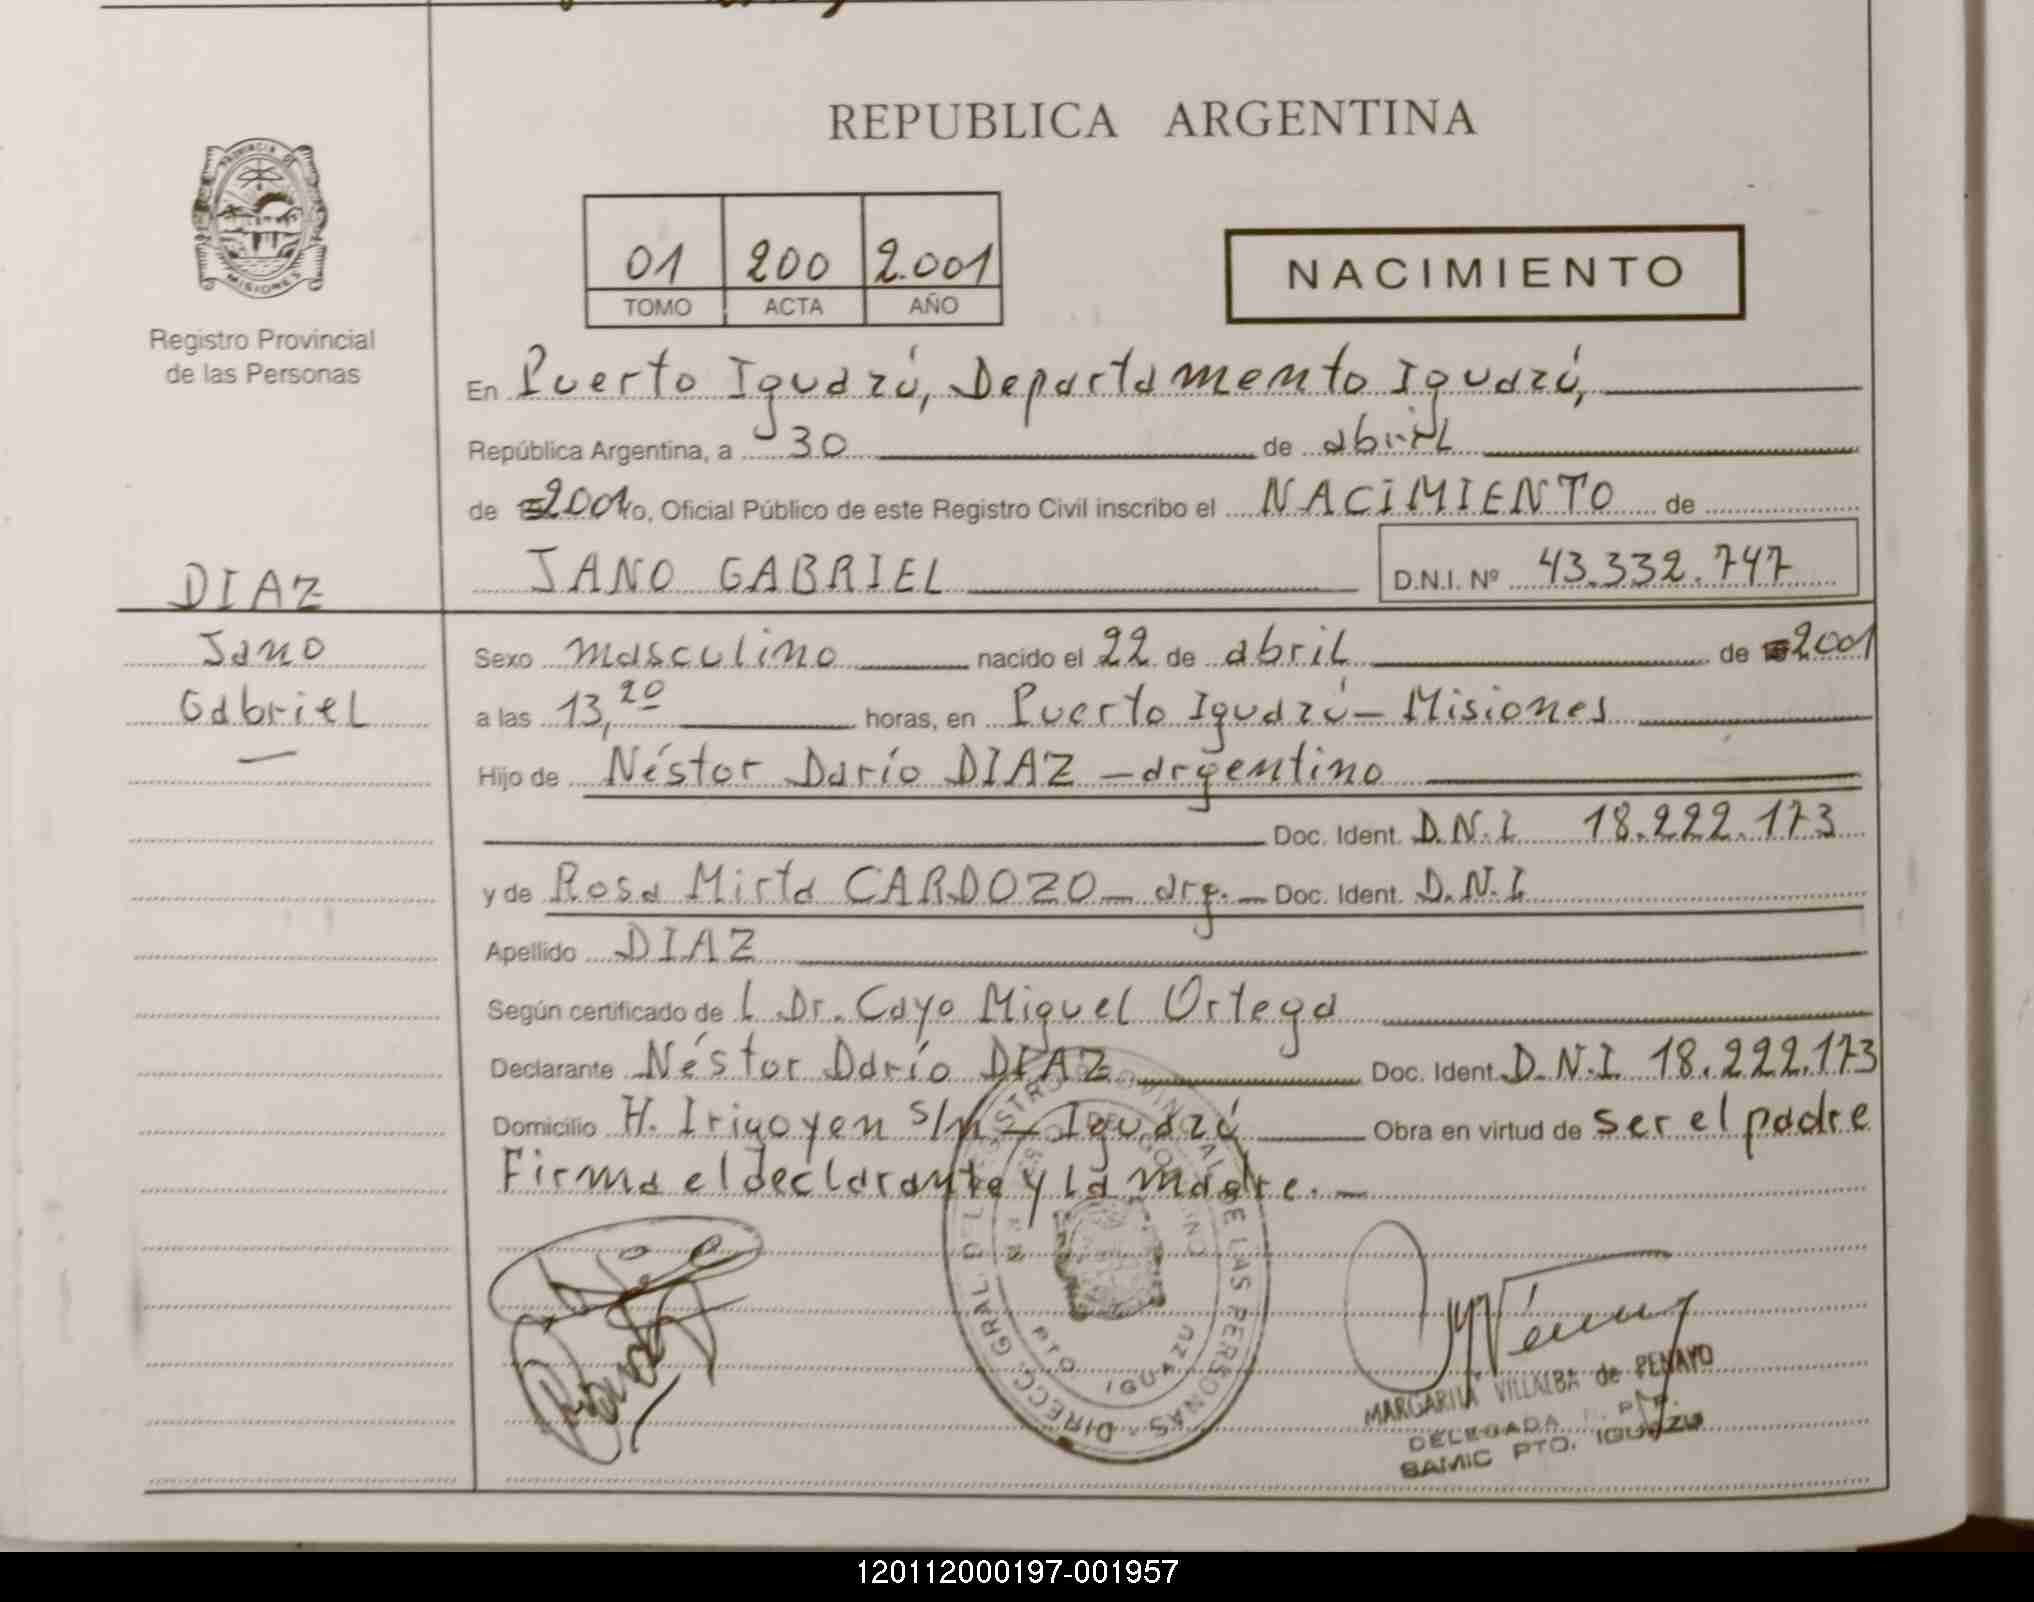 REPUBLICA ARGENTINA
PROVINCIA DE
MISIONES
Registro Provincial
de las Personas
01 200 2.001
TOMO ACTA AÑO
NACIMIENTO
En Puerto Iguazú, Departamento Iguazú,
República Argentina, a 30 de abril
de 2001 Yo, Oficial Público de este Registro Civil inscribo el NACIMIENTO de
JANO GABRIEL D.N.I. Nº 43.332.747
DIAZ
Jano
Gabriel
Sexo masculino nacido el 22 de abril de 2001
a las 13,20 horas, en Puerto Iguazú - Misiones
Hijo de Néstor Darío DIAZ - argentino
Doc. Ident. D.N.I 18.222.173
y de Rosa Mirta CARDOZO - arg. - Doc. Ident. D.N.I
Apellido DIAZ
Según certificado de L Dr. Cayo Miguel Ortega
Declarante Néstor Darío DIAZ Doc. Ident. D.N.I. 18.222.173
Domicilio H. Irigoyen s/n - Iguazú Obra en virtud de ser el padre
Firma el declarante y la madre. -
DIRECC. GRAL. DEL REGISTRO PROVINCIAL DE LAS PERSONAS
PTO. IGUAZU
MARGARITA VILLALBA de PENAYO
DELEGADA R. P. P.
SAMIC PTO. IGUAZU
120112000197-001957